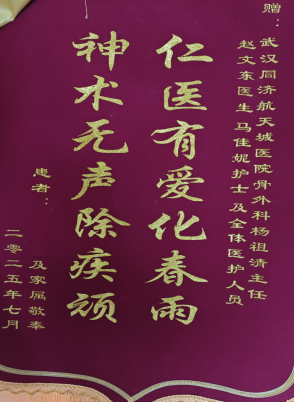 赠：武汉同济航天城医院骨外科杨祖清主任
赵文东医生马佳妮护士及全体医护人员
仁医有爱化春雨
神术无声除疾顽
患者：
及家属敬奉
二零二五年七月